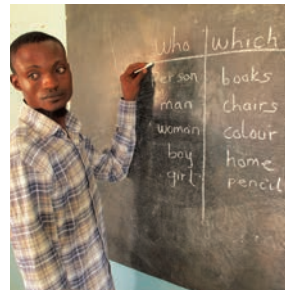 Who which
Person books
man chairs
woman colour
boy home
girl pencil